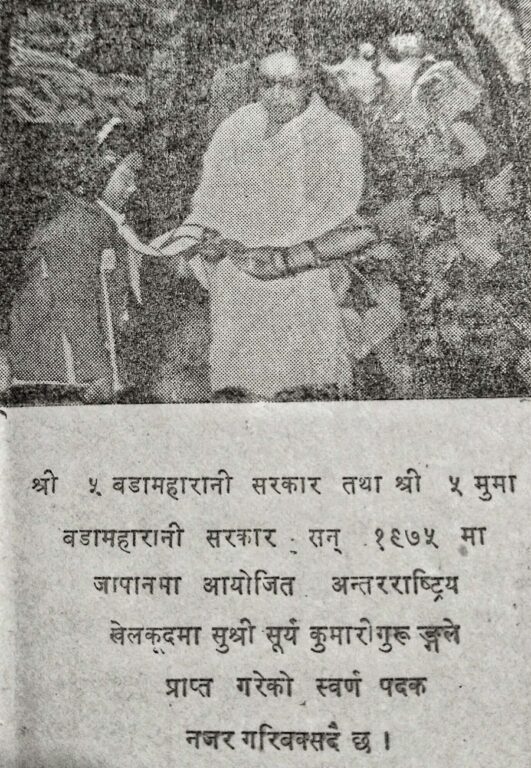 श्री ५ बडामहारानी सरकार तथा श्री ५ मुमा
बडामहारानी सरकार सन् १९७५ मा
जापानमा आयोजित अन्तरराष्ट्रिय
खेलकूदमा सुश्री सूर्य कुमारीगुरू ङ्गले
प्राप्त गरेको स्वर्ण पदक
नजर गरिबक्सदै छ ।